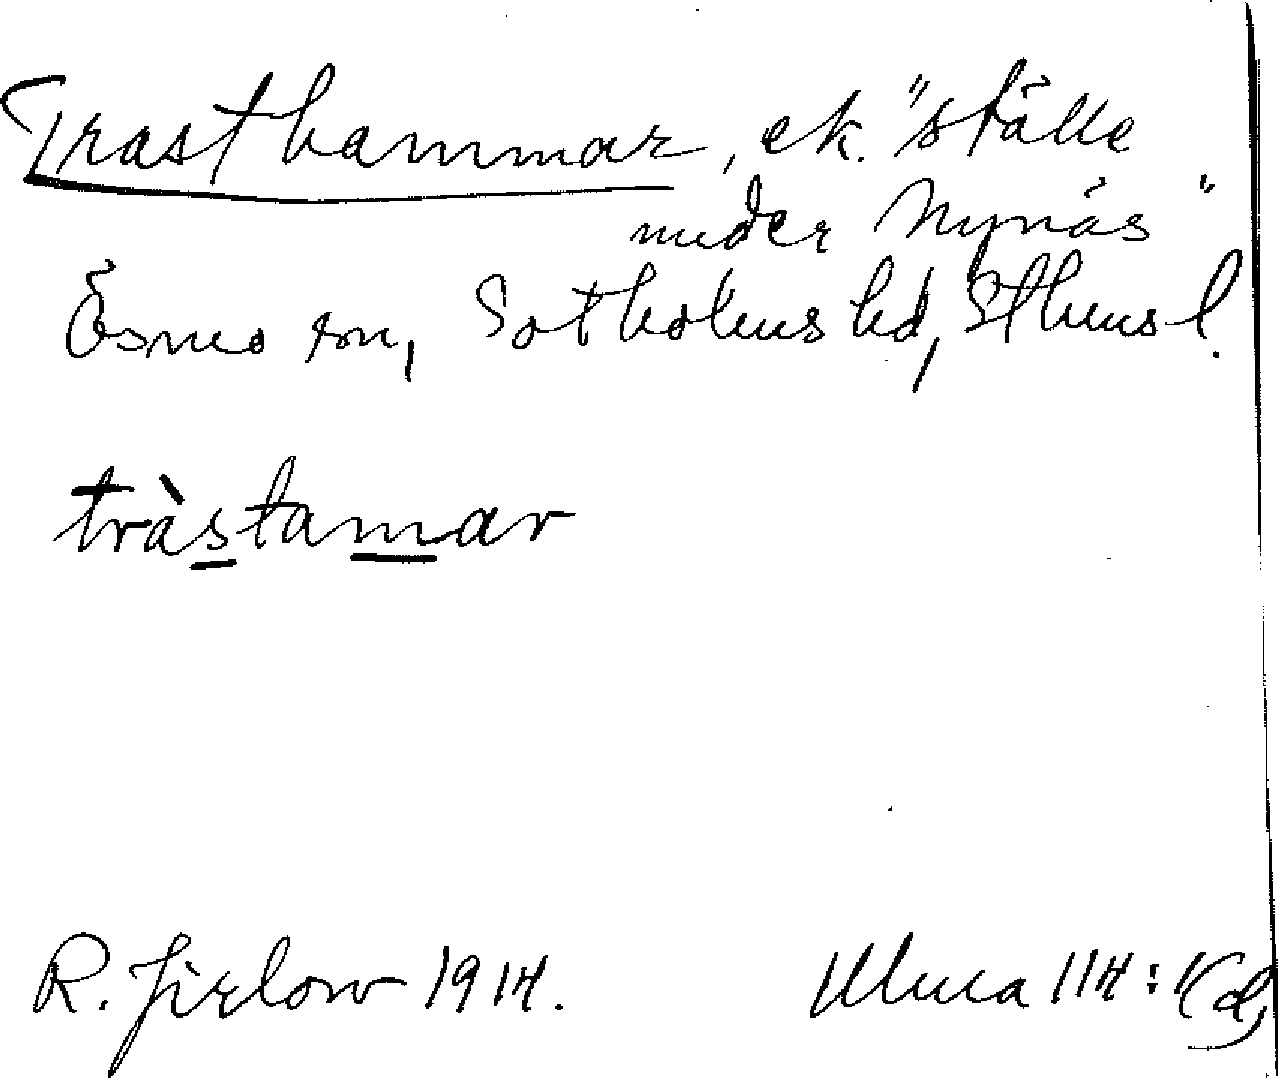 Trasthammar, ek. "ställe
under Nynäs"
Ösmo sn, Sotholms hd, Sthms l.
tràstamar
R. Jirlow 1914.
Ulma 114: